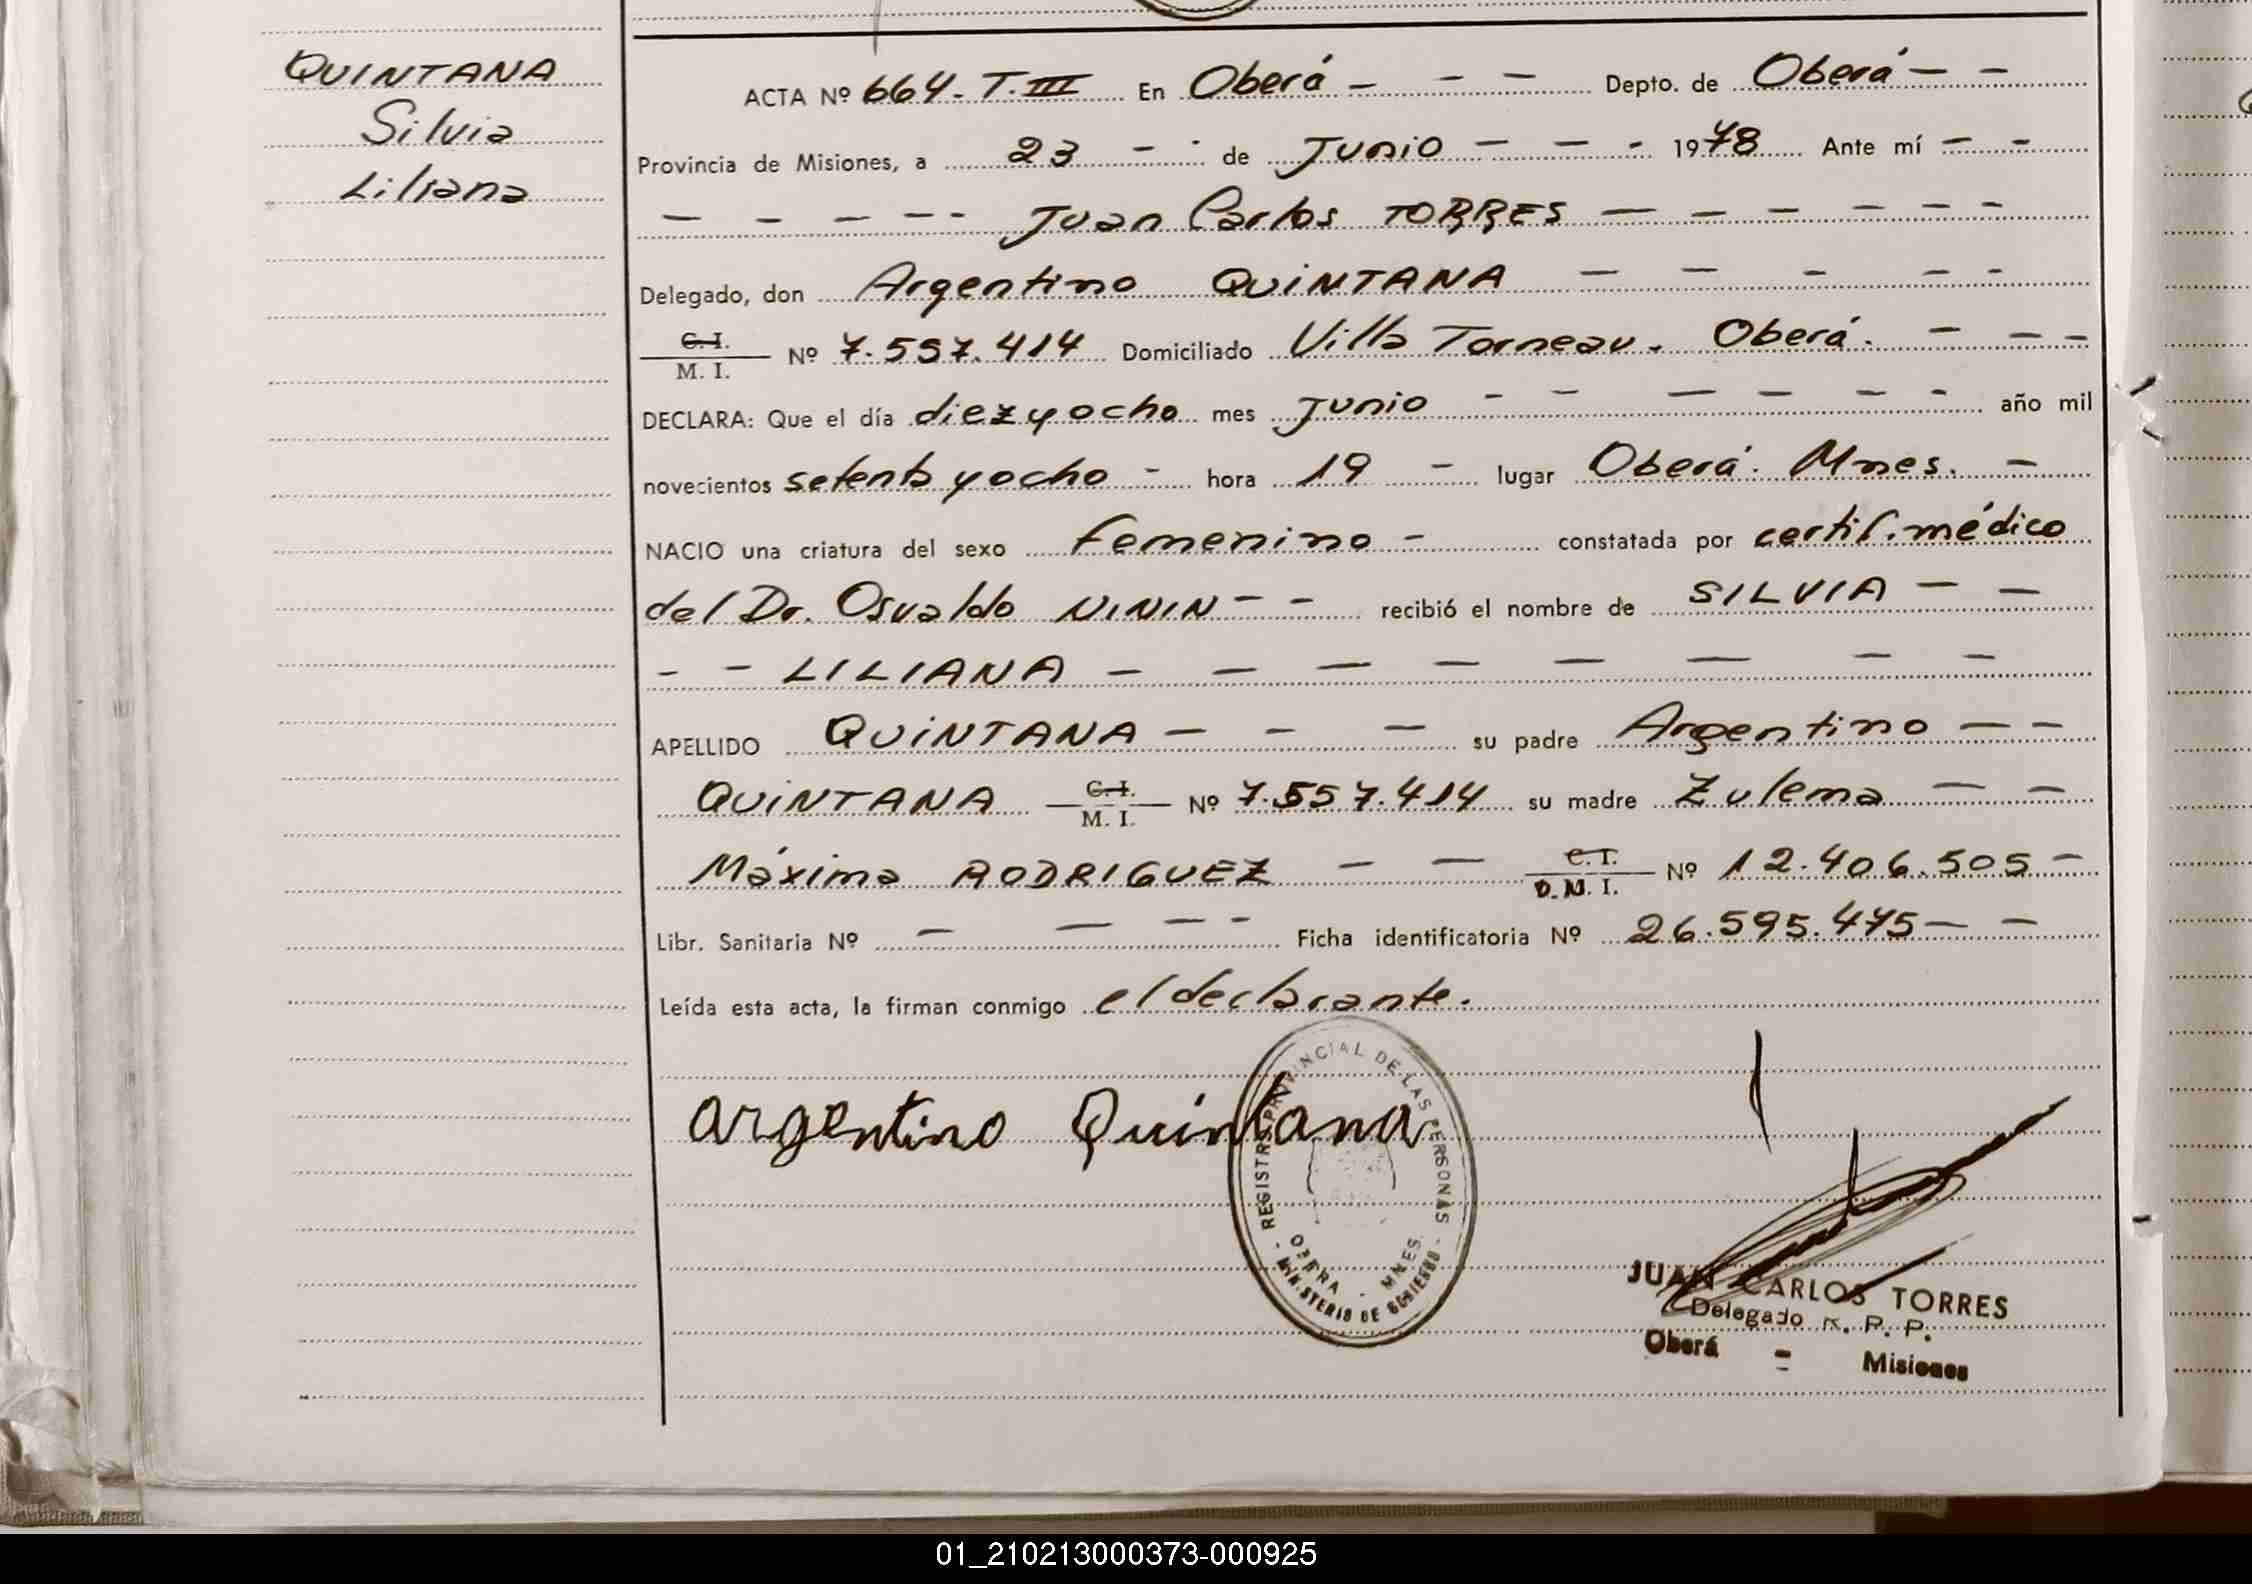 QUINTANA
Silvia
Liliana
ACTA Nº 664-T.III En Oberá - - - Depto. de Oberá - -
Provincia de Misiones, a 23 - - de Junio - - - 1978 Ante mí - -
- - - - - Juan Carlos TORRES - - - - - -
Delegado, don Argentino QUINTANA - - - - -
C.I.
M. I. Nº 7.557.414 Domiciliado Villa Torneau. Oberá. - - -
DECLARA: Que el día diez y ocho mes Junio - - - - - - año mil
novecientos setenta y ocho - hora 19 - lugar Oberá. Mnes. -
NACIO una criatura del sexo Femenino - constatada por certif. médico
del Dr. Osvaldo NININ - - recibió el nombre de SILVIA - -
- - LILIANA - - - - - - - -
APELLIDO QUINTANA - - - su padre Argentino - -
QUINTANA C.I.
M. I. Nº 7.557.414 su madre Zulema - -
Máxima RODRIGUEZ - - C.I.
D.N. I. Nº 12.406.505 -
Libr. Sanitaria Nº - - - - Ficha identificatoria Nº 26.595.475 - -
Leída esta acta, la firman conmigo el declarante.
Argentino Quintana
REGISTRO PROVINCIAL DE LAS PERSONAS
OBERA - MNES.
- MINISTERIO DE GOBIERNO -
JUAN CARLOS TORRES
Delegado R. P. P.
Oberá - Misiones
01_210213000373-000925